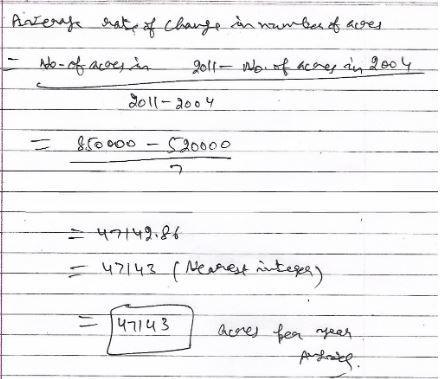 Average rate of change in number of acres
= No. of acres in 2011 - No. of acres in 2004
2011 - 2004
= 850000 - 520000
7
= 47142.86
= 47143 (Nearest integer)
= 47143 acres per year